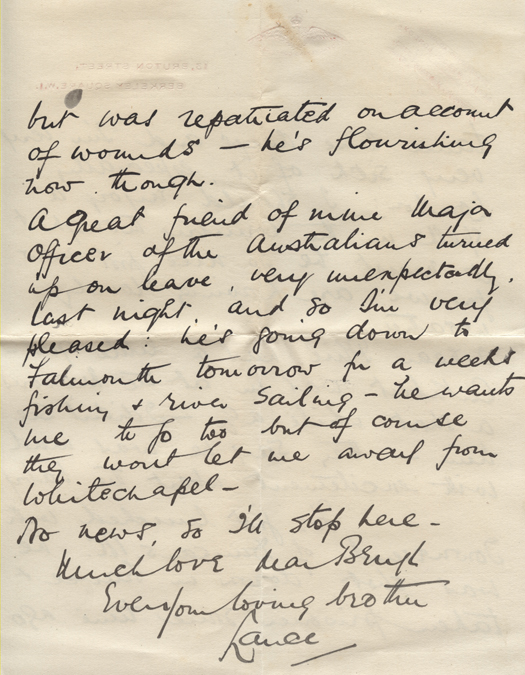 10, BRUTON STREET,
BERKELEY SQUARE, W.1.
but was repatriated on account
of wounds – he's flourishing
now though.
A great friend of mine Major
Officer of the Australians turned
up on leave, very unexpectedly,
last night, and so I'm very
pleased: he's going down to
Falmouth tomorrow for a weeks
fishing & river sailing – he wants
me to go too but of course
they wont let me away from
Whitechapel –
No news, so I'll stop here –
Much love dear
Ever your loving brother
Lance